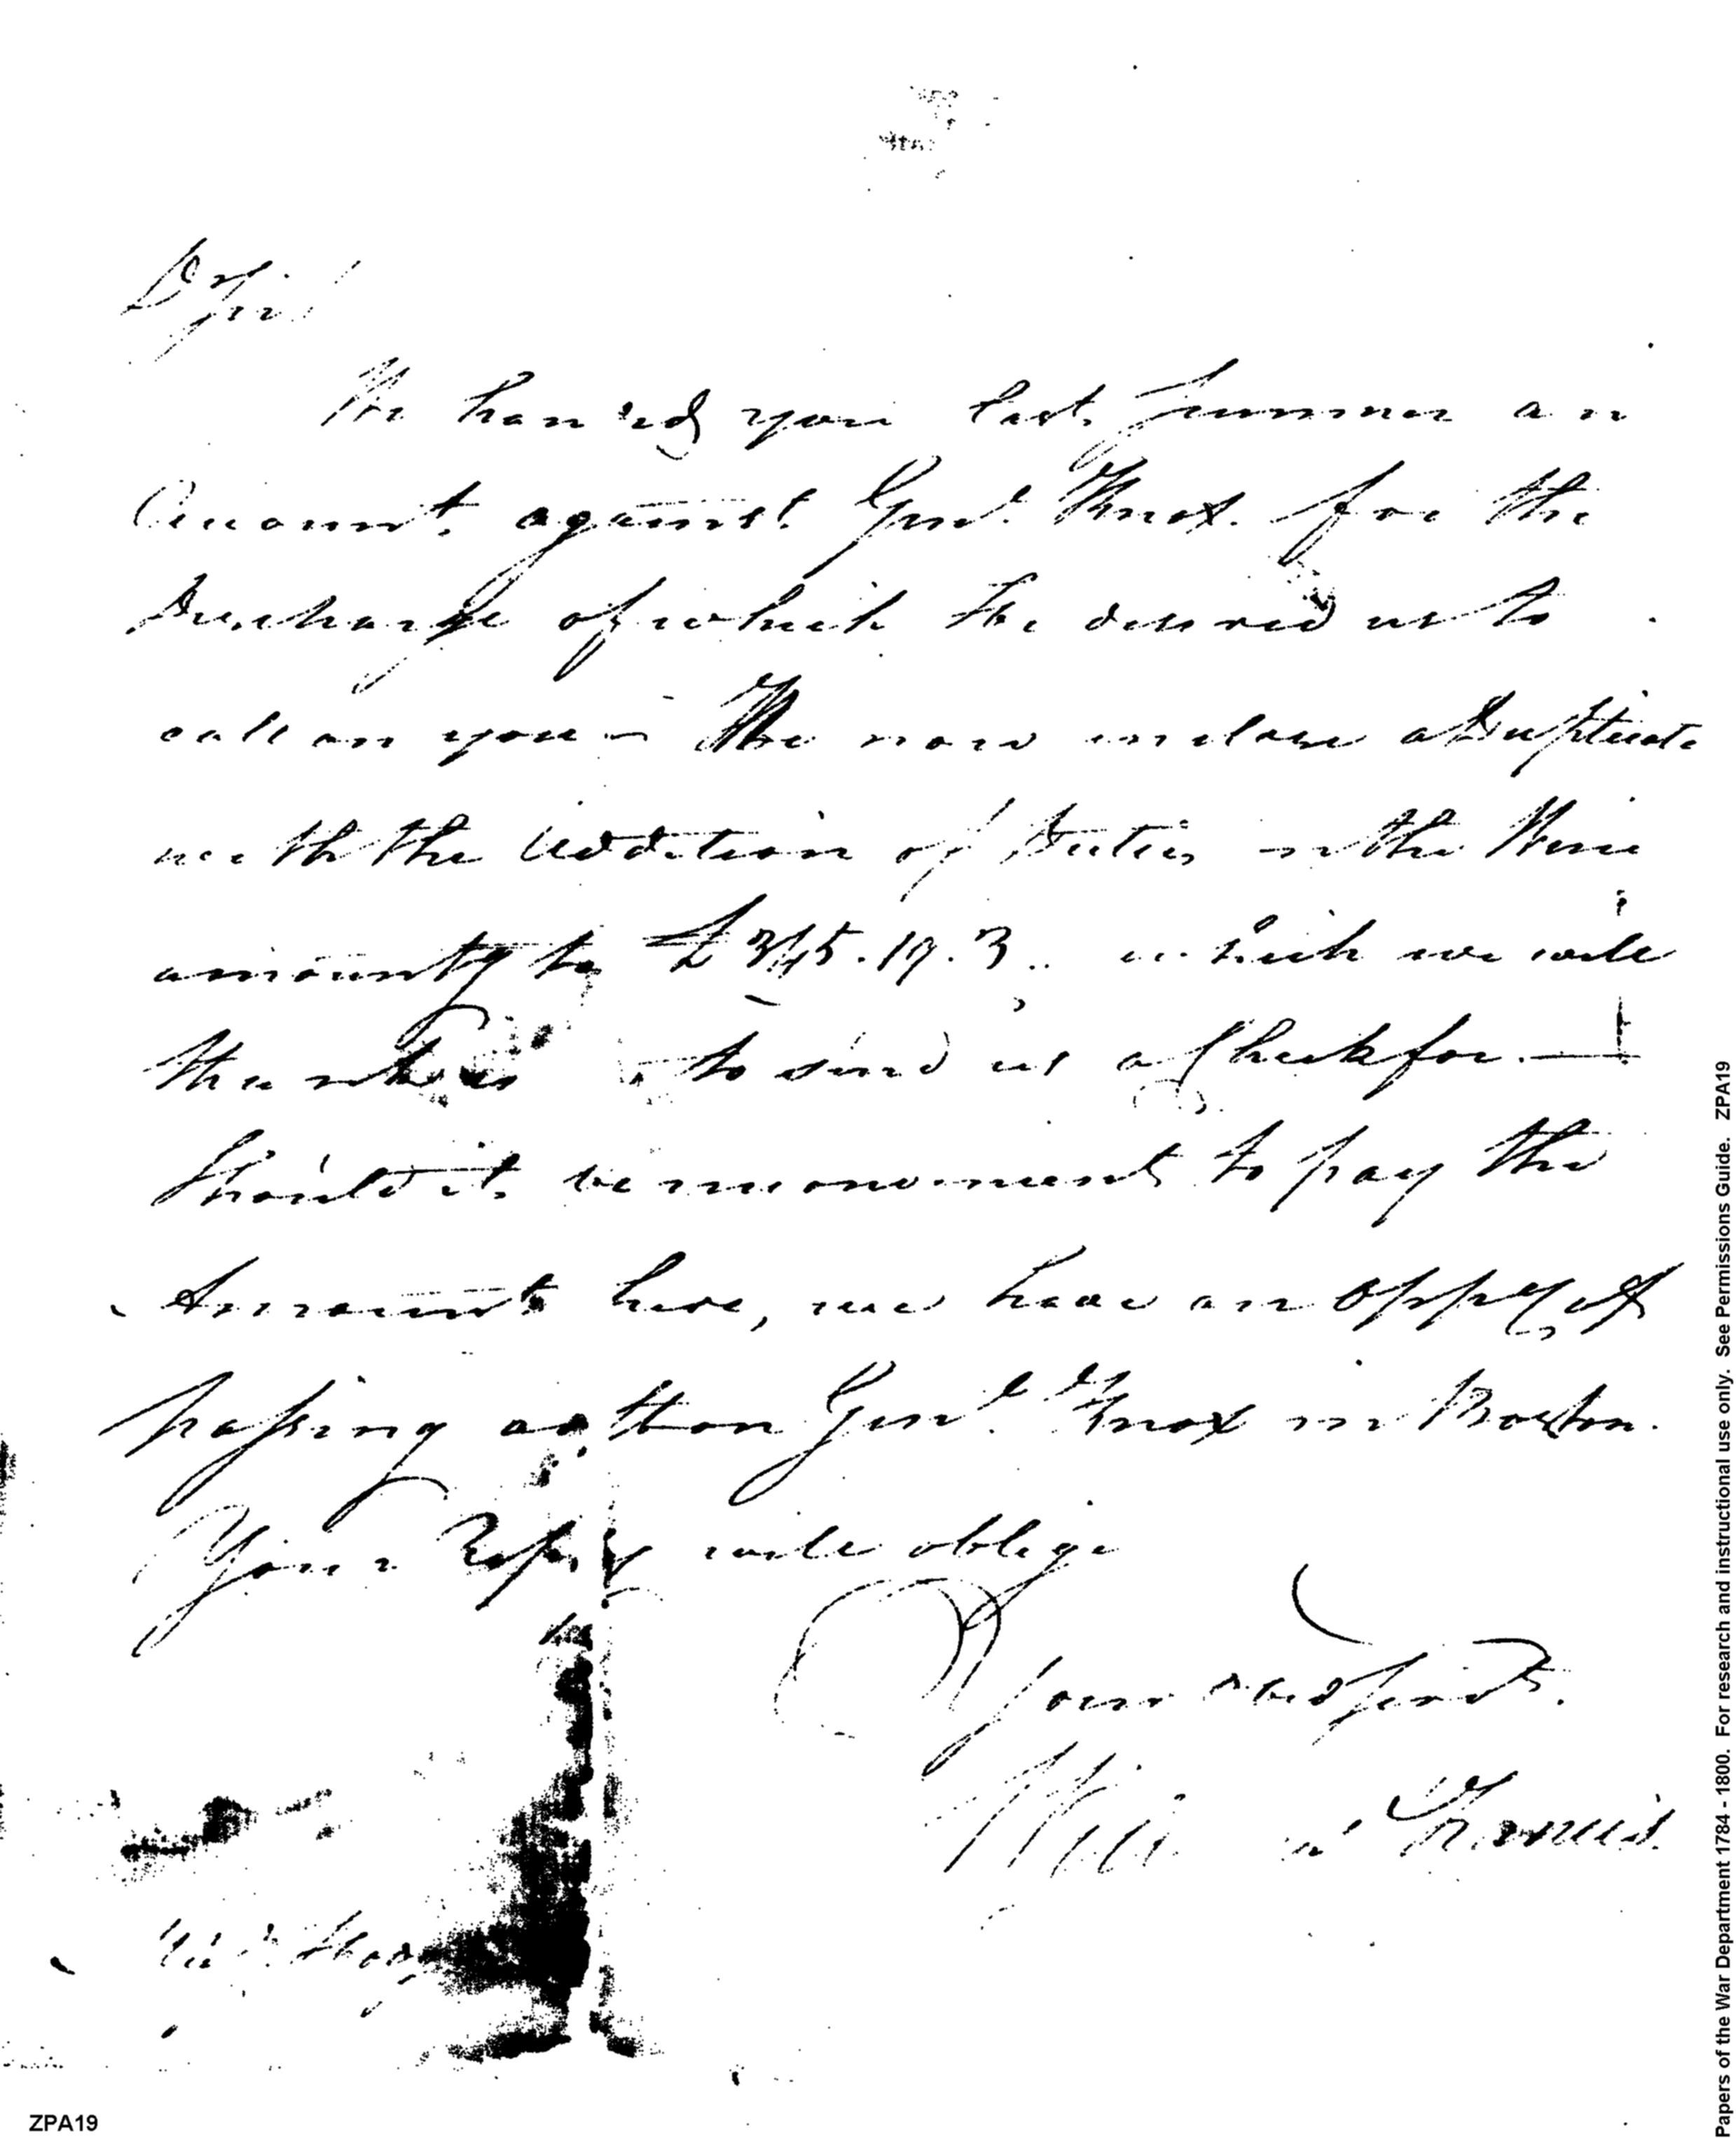 Dr Sir
We handed you last Summer an
Account against Genl. Knox for the
Discharge of which he desired us to
call on you - We now inclose a Duplicate
with the Addition of Duties on the Wine
amountg to £345.19.3.. which we will
thank you to send us a Check for. —
Should it be inconvenient to pay the
Amount here, we have an oppy of
passing a dft on Genl. Knox in Boston.
Your Reply will oblige
Your
Francis
ZPA19
Papers of the War Department 1784 - 1800. For research and instructional use only. See Permissions Guide. ZPA19